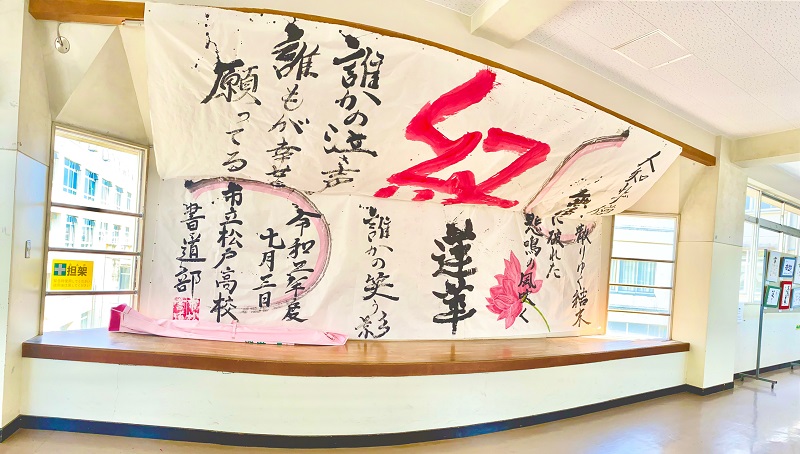 散りゆく結末
無惨に破れた
悲鳴の風吹く
紅
蓮華
誰かの泣き声
誰かの笑う影
誰もが幸せ
願ってる
令和三年度
七月三日
市立松戸高校
書道部
担架